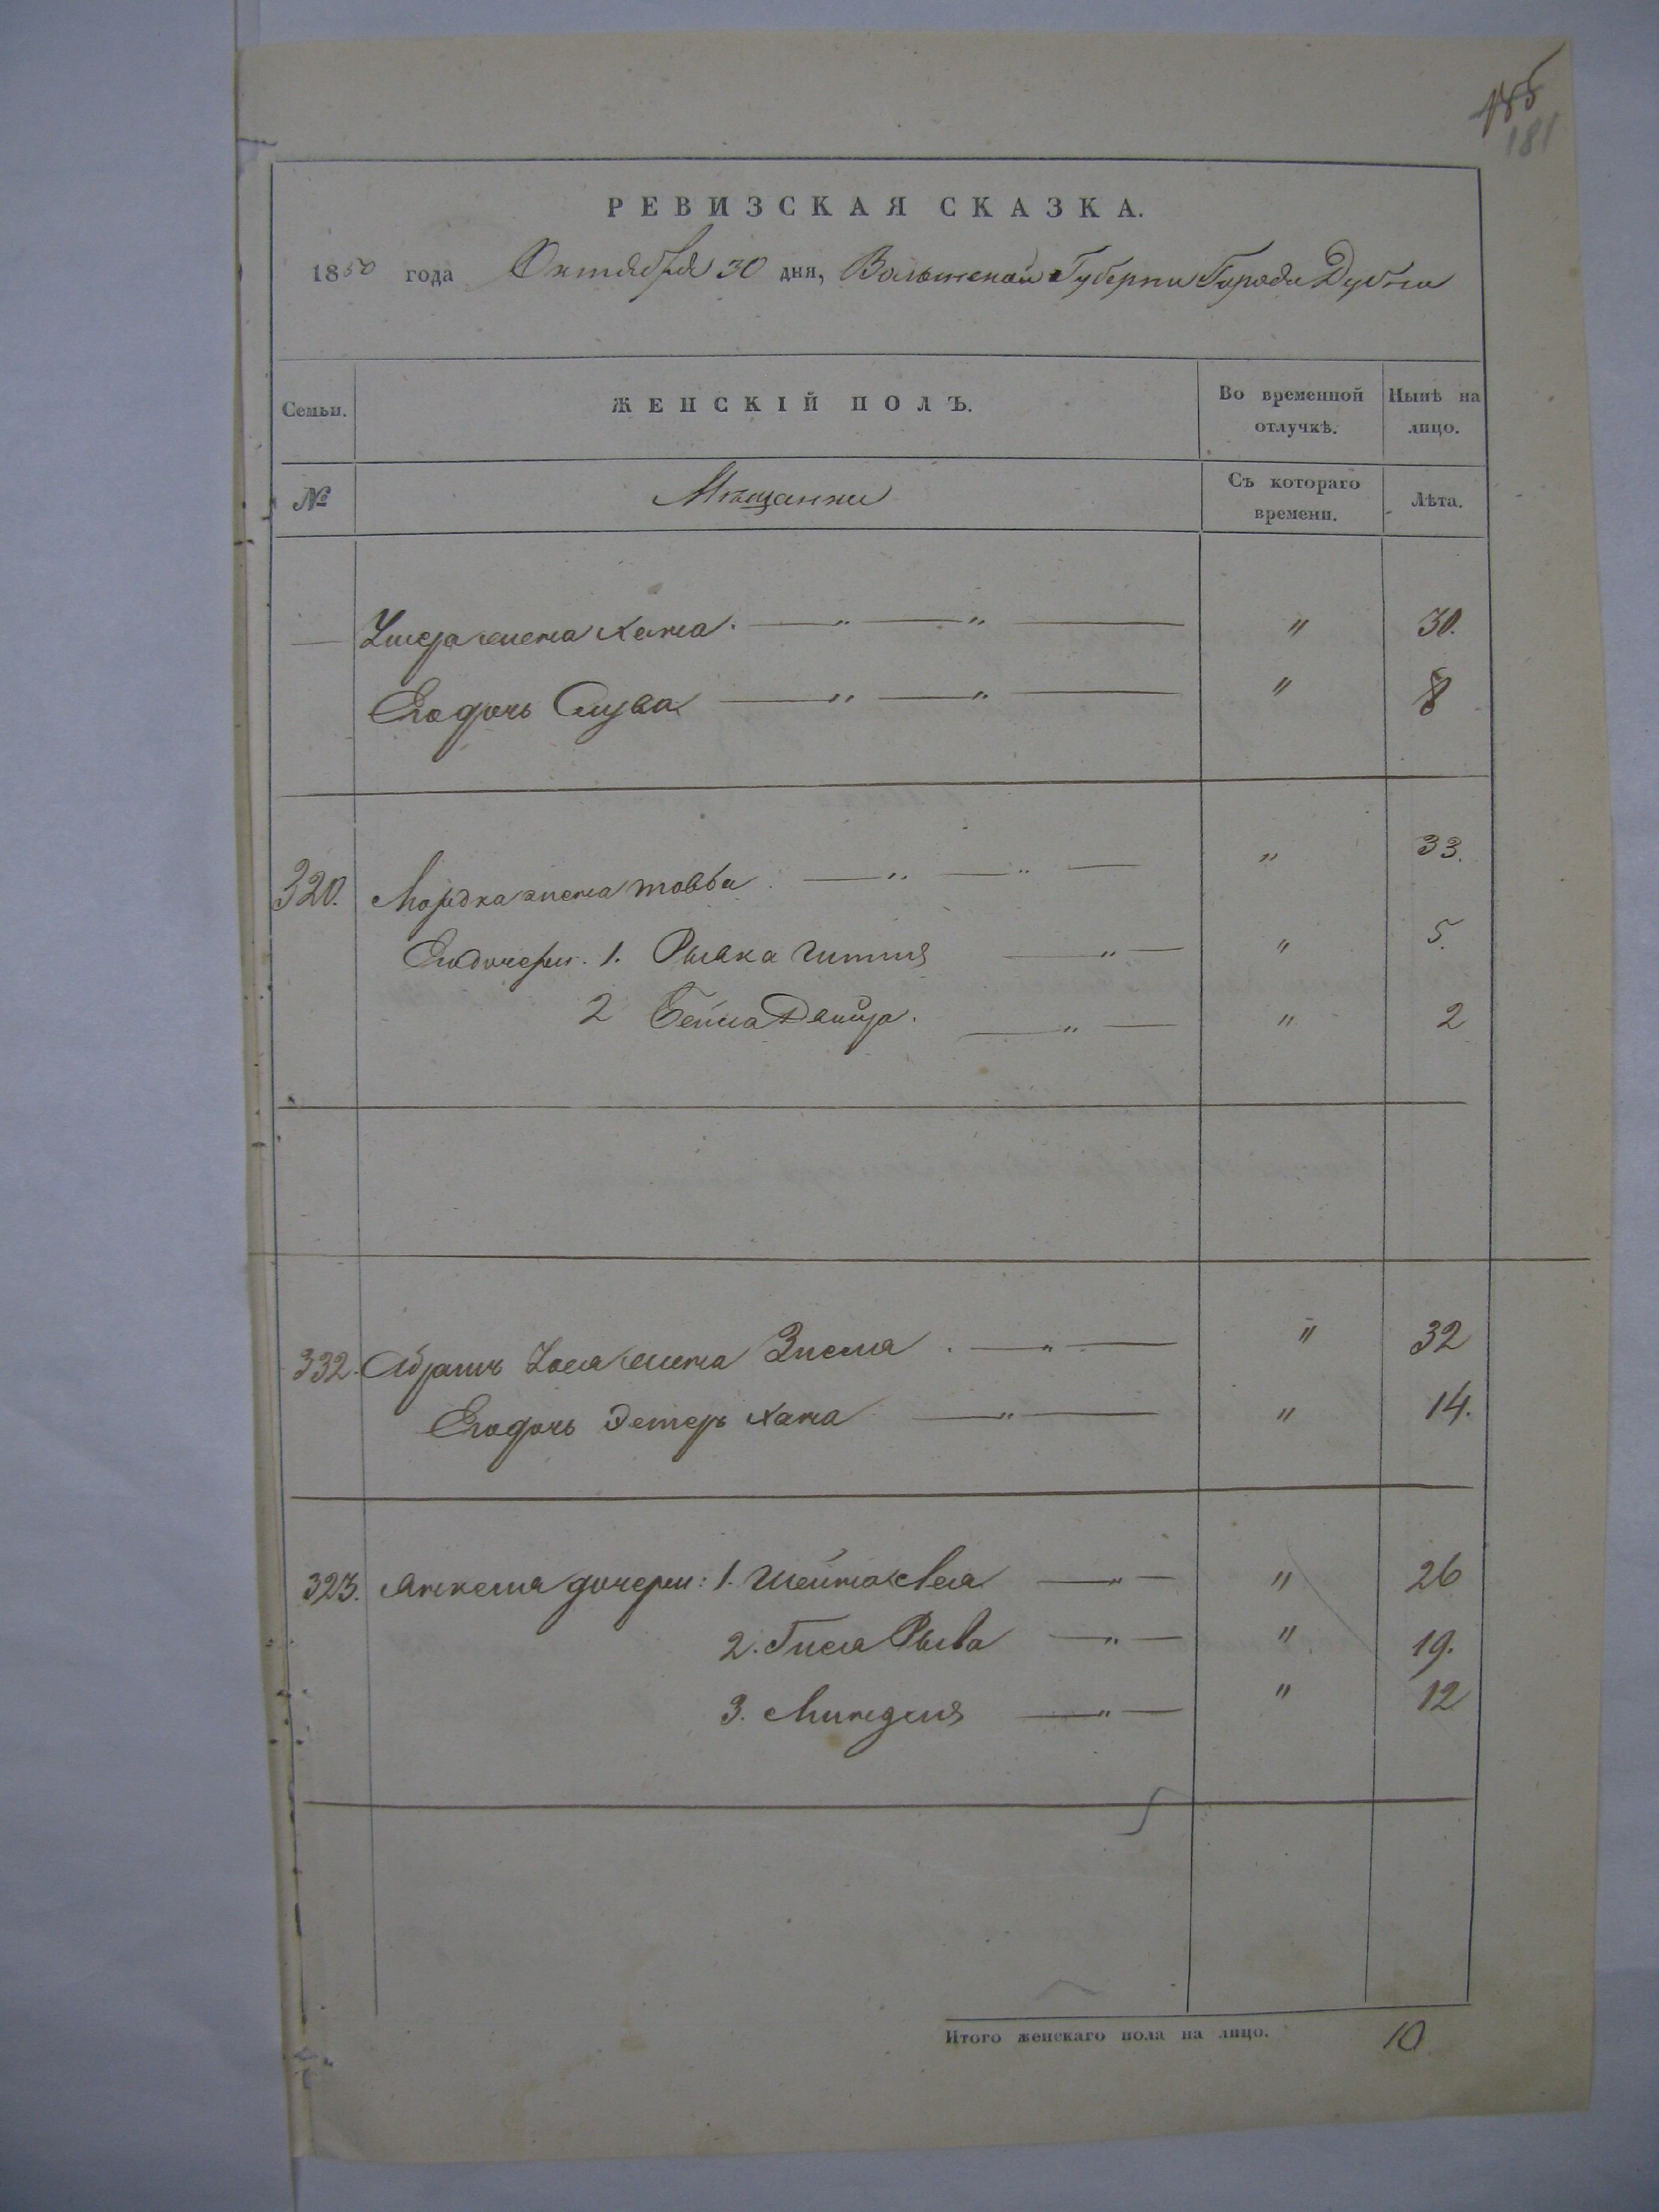 185
181
РЕВИЗСКАЯ СКАЗКА.
1850 года Октября 30 дня, Волынской Губернии Города Дубна
Семьи. ЖЕНСКІЙ ПОЛЪ. Во временной отлучкѣ. Нынѣ на лицо.
№ Мѣщанки Съ котораго времени. Лѣта.
жена Хана. — „ — „ — „ 30.
Его дочь Слува — „ — „ — „ 8
320. Мордка жена Товба — „ — „ — „ 33.
Его дочери. 1. Рывка Гитля — „ — „ 5.
2 Бейла Двойра. — „ — „ 2
332. Абрамъ жена Зисля . — „ — „ 32
Его дочь Эстеръ Хана — „ — „ 14.
323. дочери: 1. Шейна Лея — „ — „ 26
2. Гися Рыва — „ — „ 19.
3. Миндля — „ — „ 12
Итого женскаго пола на лицо. 10